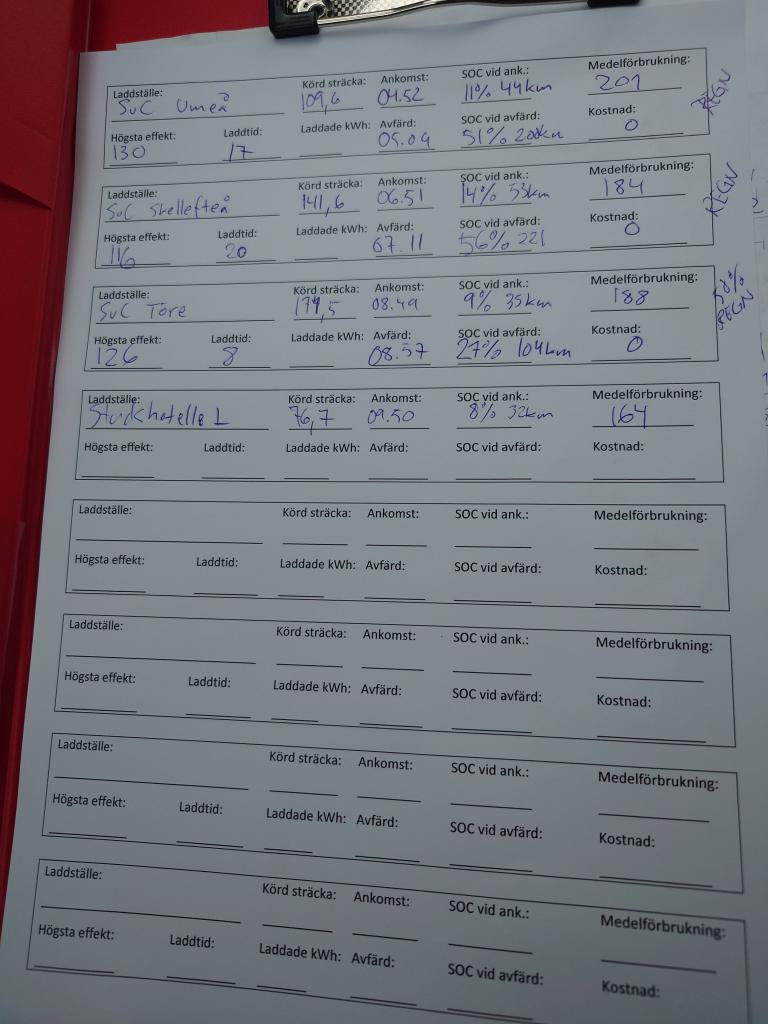 Laddställe: Körd sträcka: Ankomst: SOC vid ank.: Medelförbrukning:
SuC Umeå 109,6 04.52 11% 44km 201 REGN
Högsta effekt: Laddtid: Laddade kWh: Avfärd: SOC vid avfärd: Kostnad:
130 17 05.09 51% 200km 0
Laddställe: Körd sträcka: Ankomst: SOC vid ank.: Medelförbrukning:
SuC Skellefteå 141,6 06.51 14% 53km 184 REGN
Högsta effekt: Laddtid: Laddade kWh: Avfärd: SOC vid avfärd: Kostnad:
116 20 07.11 56% 221 0
Laddställe: Körd sträcka: Ankomst: SOC vid ank.: Medelförbrukning:
SuC Töre 08.49 9% 35km 188 50% REGN
Högsta effekt: Laddtid: Laddade kWh: Avfärd: SOC vid avfärd: Kostnad:
126 8 08.57 27% 104km 0
Laddställe: Körd sträcka: Ankomst: SOC vid ank.: Medelförbrukning:
76,7 09.50 8% 32km 164
Högsta effekt: Laddtid: Laddade kWh: Avfärd: SOC vid avfärd: Kostnad:
Laddställe: Körd sträcka: Ankomst: SOC vid ank.: Medelförbrukning:
Högsta effekt: Laddtid: Laddade kWh: Avfärd: SOC vid avfärd: Kostnad:
Laddställe: Körd sträcka: Ankomst: SOC vid ank.: Medelförbrukning:
Högsta effekt: Laddtid: Laddade kWh: Avfärd: SOC vid avfärd: Kostnad:
Laddställe: Körd sträcka: Ankomst: SOC vid ank.: Medelförbrukning:
Högsta effekt: Laddtid: Laddade kWh: Avfärd: SOC vid avfärd: Kostnad:
Laddställe: Körd sträcka: Ankomst: SOC vid ank.: Medelförbrukning:
Högsta effekt: Laddtid: Laddade kWh: Avfärd: SOC vid avfärd: Kostnad: